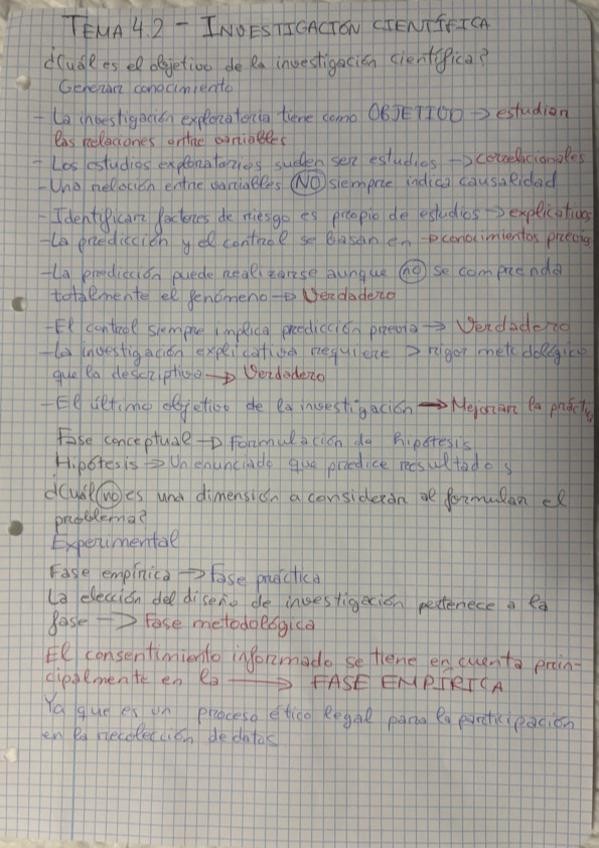 TEMA 4.2 - INVESTIGACIÓN CIENTÍFICA
¿Cuál es el objetivo de la investigación científica?
Generar conocimiento
- La investigación exploratoria tiene como OBJETIVO → estudiar
las relaciones entre variables
- Los estudios exploratorios suelen ser estudios → correlacionales
- Una relación entre variables NO siempre indica causalidad
- Identificar factores de riesgo es propio de estudios → explicativos
- La predicción y el control se basan en → conocimientos previos
- La predicción puede realizarse aunque no se comprenda
totalmente el fenómeno → Verdadero
- El control siempre implica predicción previa → Verdadero
- La investigación explicativa requiere > rigor metodológico
que la descriptiva → Verdadero
- El último objetivo de la investigación → Mejorar la práctica
Fase conceptual → Formulación de hipótesis
Hipótesis → Un enunciado que predice resultados
¿Cuál no es una dimensión a considerar al formular el
problema?
Experimental
Fase empírica → Fase práctica
La elección del diseño de investigación pertenece a la
fase → Fase metodológica
El consentimiento informado se tiene en cuenta prin-
cipalmente en la → FASE EMPÍRICA
Ya que es un proceso ético legal para la participación
en la recolección de datos